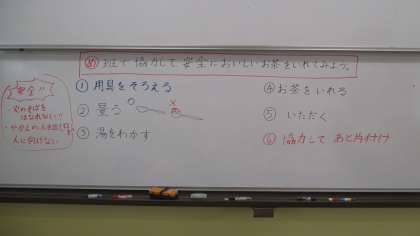 め 班で協力して安全においしいお茶をいれてみよう。
① 用具をそろえる
② 量る
③ 湯をわかす
④ お茶をいれる
⑤ いただく
⑥ 協力して あと片付け
安全!!
・火のそばを
はなれない!!
人に向けない